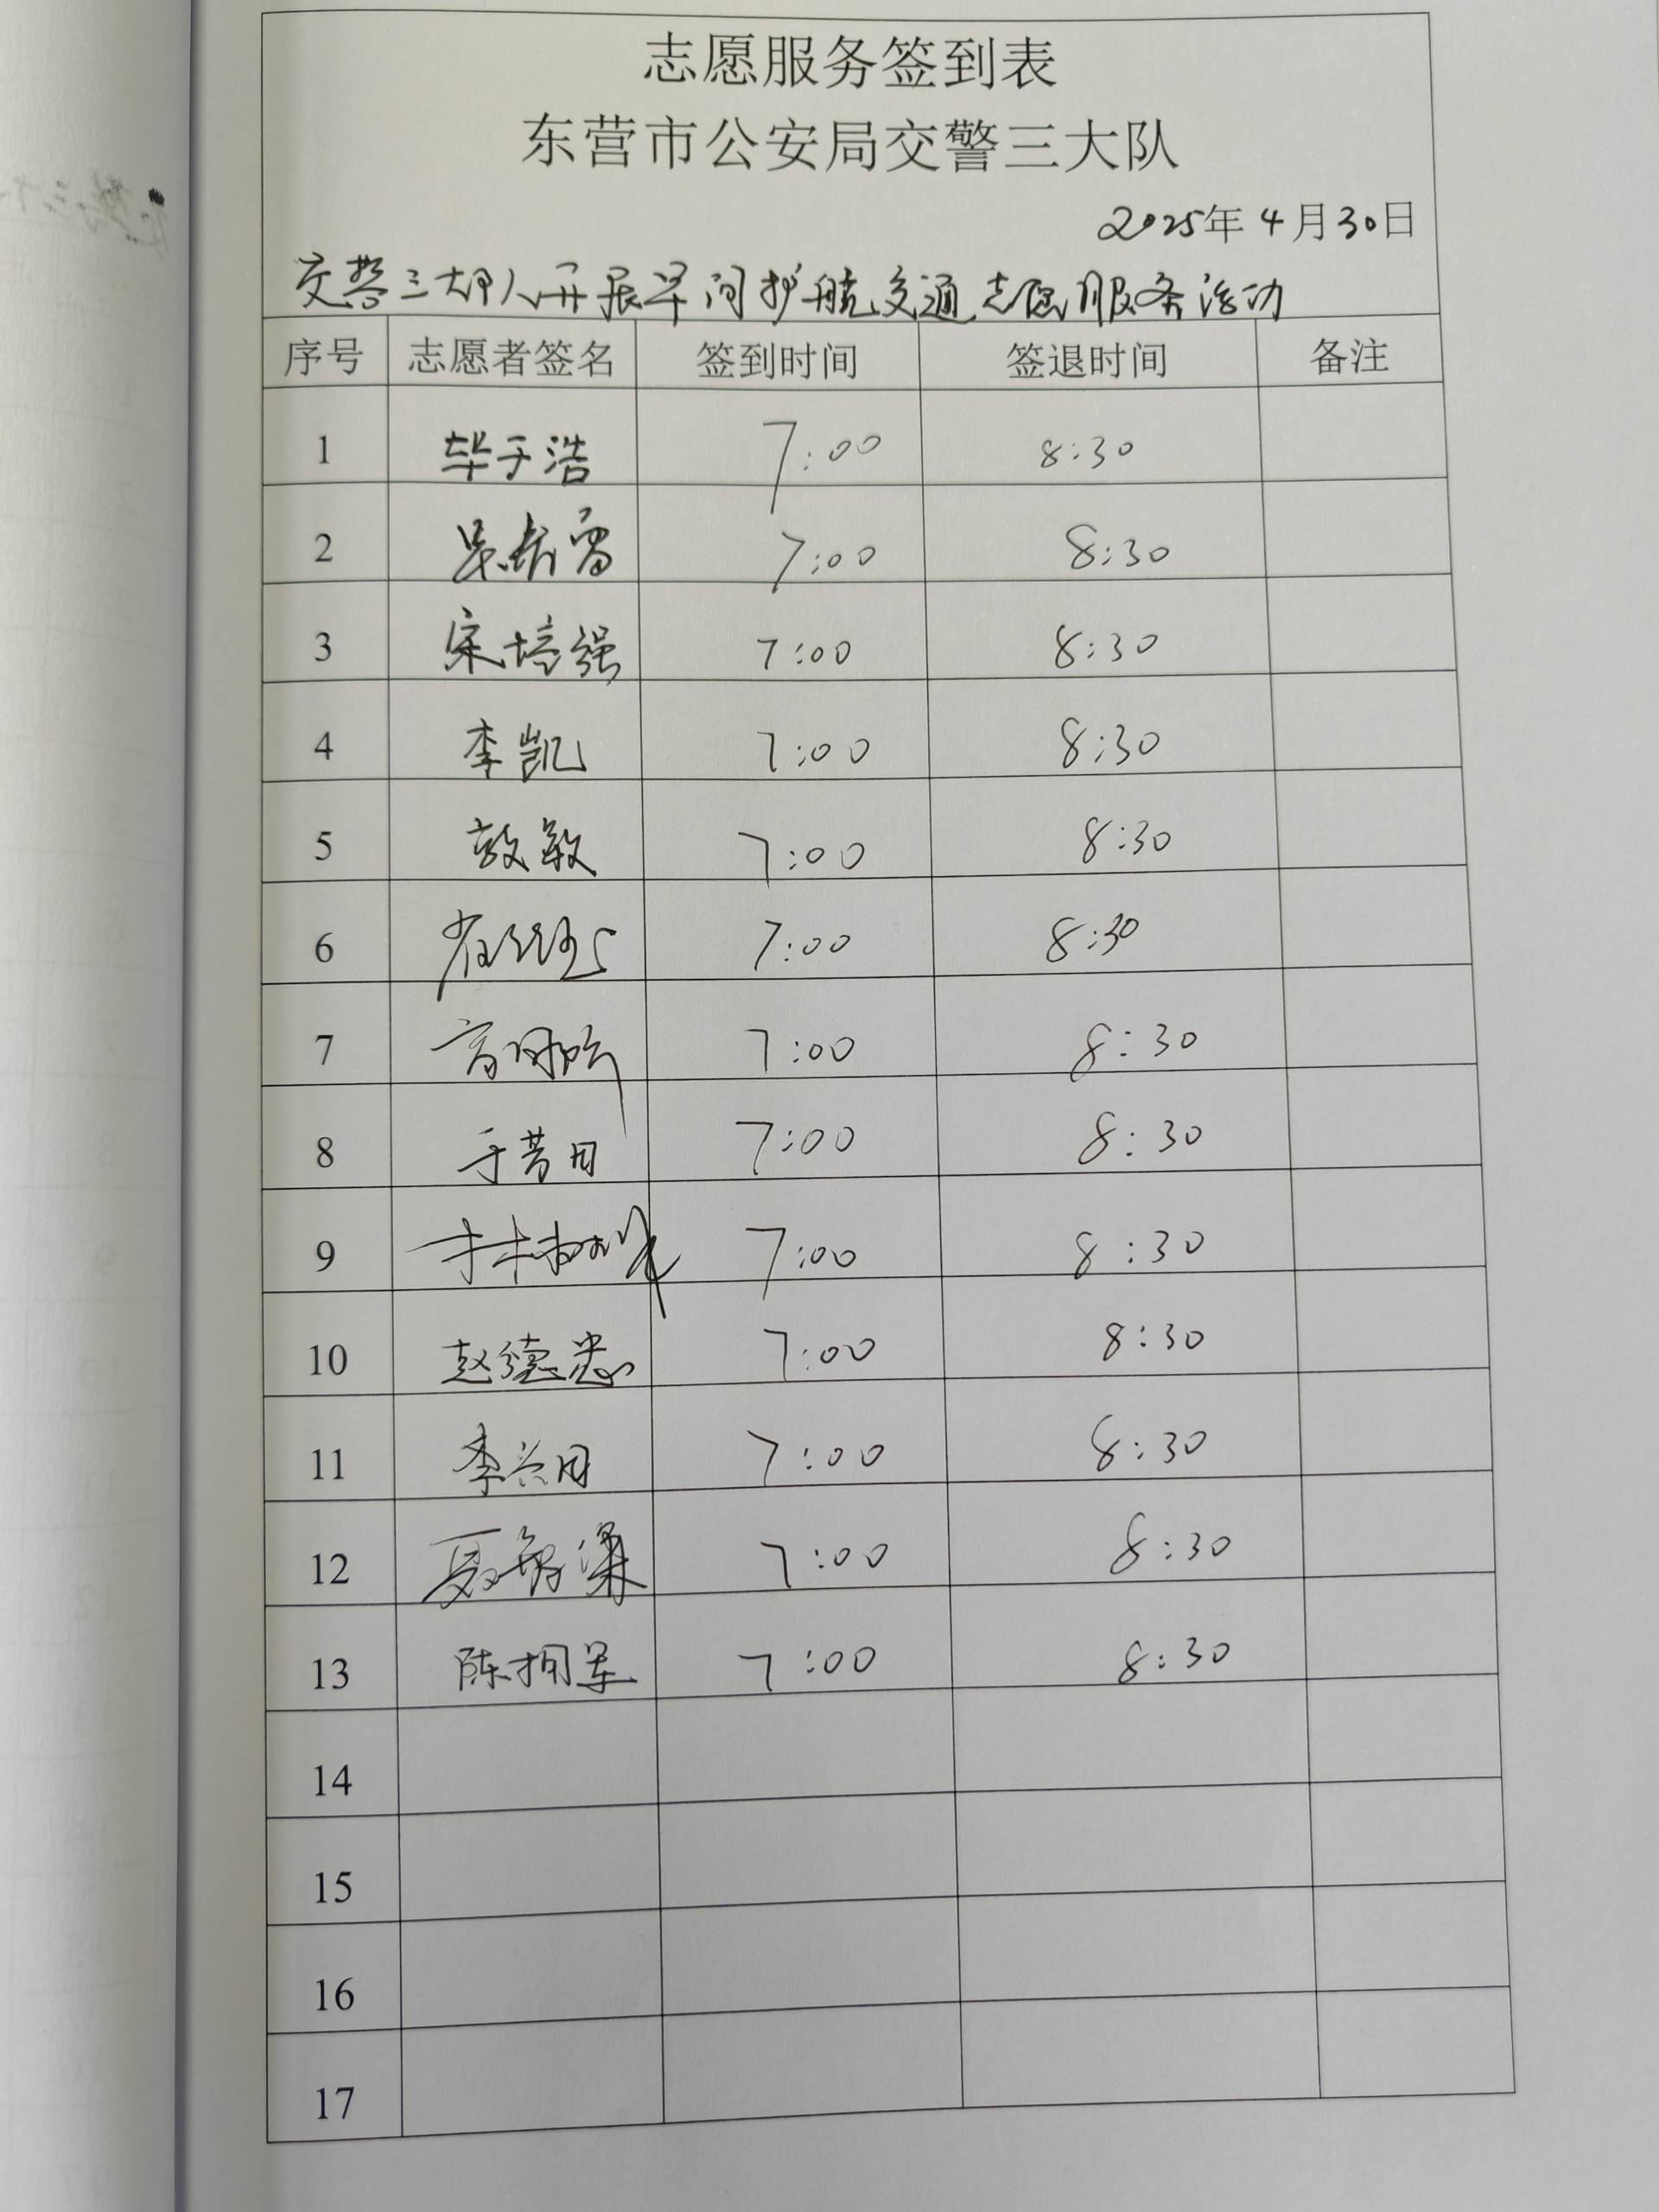 志愿服务签到表
东营市公安局交警三大队
2025年4月30日
交警三大队开展早间护航交通志愿服务活动
序号 志愿者签名 签到时间 签退时间 备注
1 毕于浩 7:00 8:30
2 7:00 8:30
3 宋培强 7:00 8:30
4 李凯 7:00 8:30
5 敏 7:00 8:30
6 7:00 8:30
7 7:00 8:30
8 于昔日 7:00 8:30
9 7:00 8:30
10 赵德忠 7:00 8:30
11 李兴国 7:00 8:30
12 聂 7:00 8:30
13 陈拥军 7:00 8:30
14
15
16
17